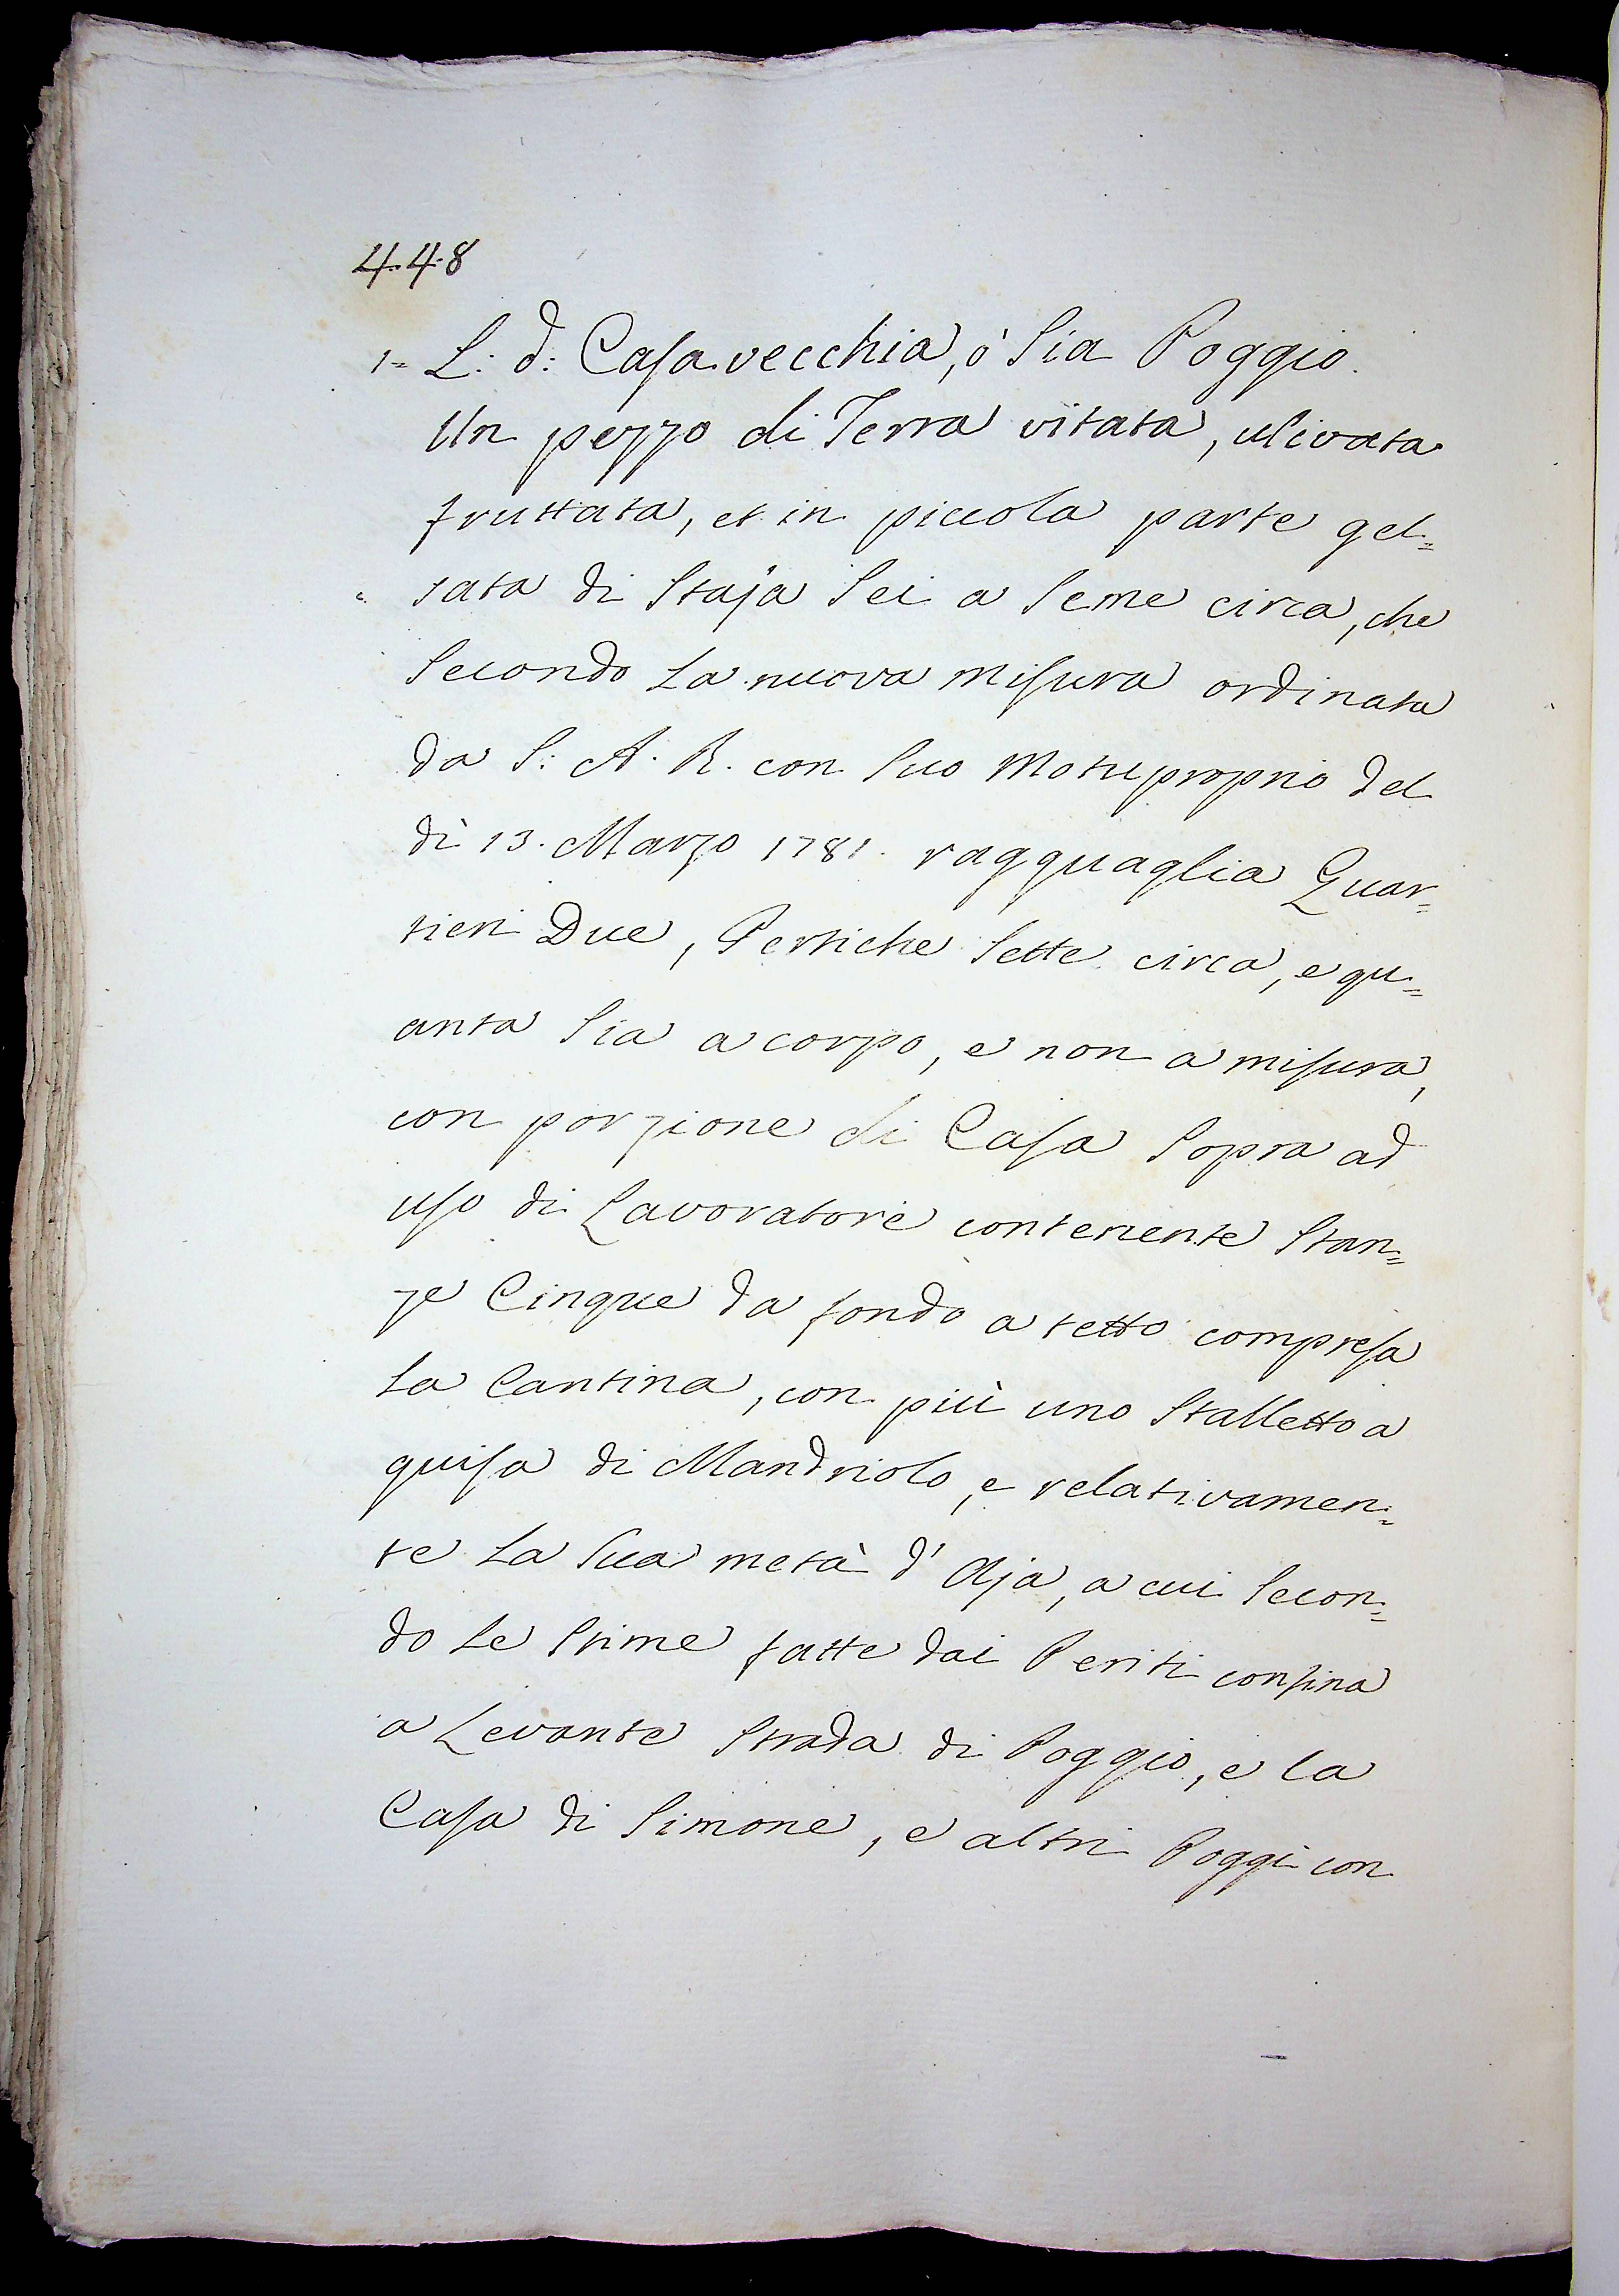 448
1= L: d: Casa vecchia, ò sia Poggio.
Un pezzo di Terra vitata, ulivata
fruttata, et in piccola parte gel=
sata di Staja Sei a Seme circa, che
Secondo La nuova misura ordinata
da S: A. R. con Suo Motuproprio del
dì 13. Marzo 1781. ragguaglia Quar=
tieri Due, Pertiche Sette circa, e qu=
anta Sia a corpo, e non a misura,
con porzione di Casa Sopra ad
uso di Lavoratore contenente Stan=
ze Cinque da fondo a tetto compresa
La Cantina, con più uno Stalletto a
guisa di Mandriolo, e relativamen=
te La Sua metà d' Aja, a cui Secon=
do Le Stime fatte dai Periti confina
a Levante Strada di Poggio, e la
Casa di Simone, e altri Poggi con